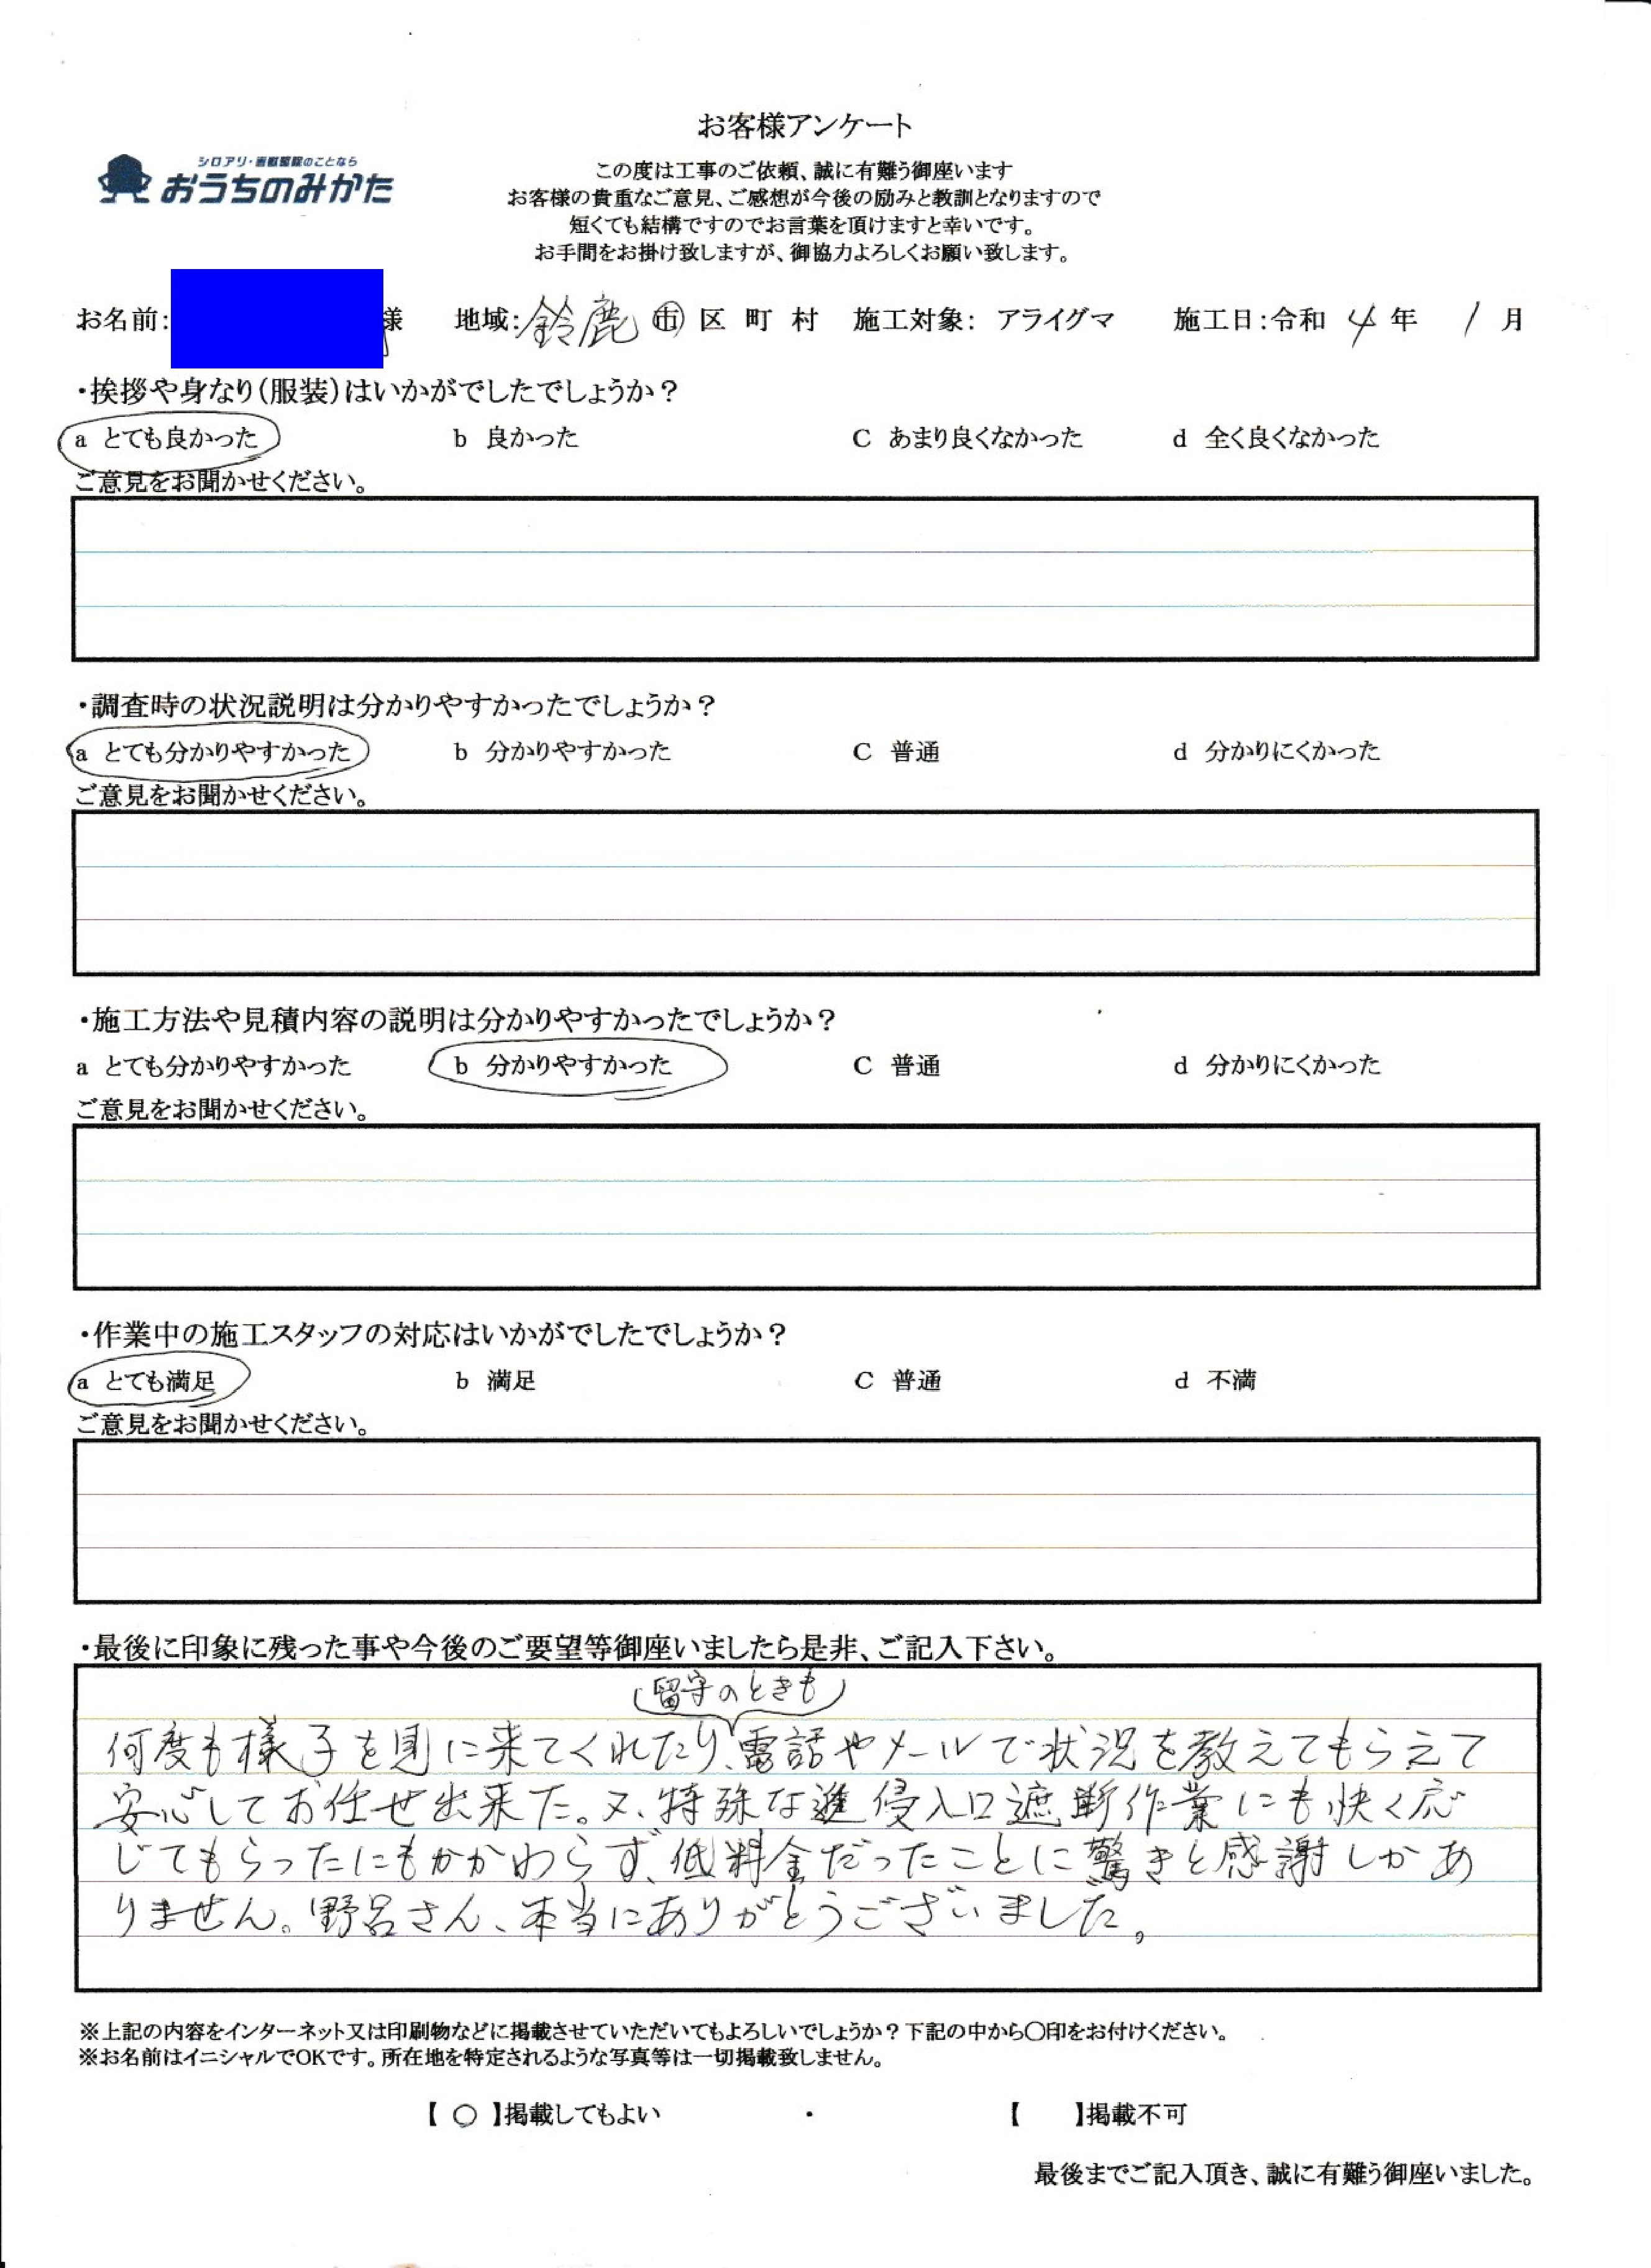 お客様アンケート
シロアリ・害獣駆除のことなら
おうちのみかた
この度は工事のご依頼、誠に有難う御座います
お客様の貴重なご意見、ご感想が今後の励みと教訓となりますので
短くても結構ですのでお言葉を頂けますと幸いです。
お手間をお掛け致しますが、御協力よろしくお願い致します。
お名前: 様 地域:鈴鹿 市 区 町 村 施工対象: アライグマ 施工日:令和 4 年 1 月
・挨拶や身なり(服装)はいかがでしたでしょうか?
a とても良かった b 良かった C あまり良くなかった d 全く良くなかった
ご意見をお聞かせください。
・調査時の状況説明は分かりやすかったでしょうか?
a とても分かりやすかった b 分かりやすかった C 普通 d 分かりにくかった
ご意見をお聞かせください。
・施工方法や見積内容の説明は分かりやすかったでしょうか?
a とても分かりやすかった b 分かりやすかった C 普通 d 分かりにくかった
ご意見をお聞かせください。
・作業中の施工スタッフの対応はいかがでしたでしょうか?
a とても満足 b 満足 C 普通 d 不満
ご意見をお聞かせください。
・最後に印象に残った事や今後のご要望等御座いましたら是非、ご記入下さい。
(留守のときも)
何度も様子を見に来てくれたり、電話やメールで状況を教えてもらえて
安心してお任せ出来た。又、特殊な進侵入口遮断作業にも快く応
じてもらったにもかかわらず、低料金だったことに驚きと感謝しかあ
りません。野呂さん、本当にありがとうございました。
※上記の内容をインターネット又は印刷物などに掲載させていただいてもよろしいでしょうか?下記の中から〇印をお付けください。
※お名前はイニシャルでOKです。所在地を特定されるような写真等は一切掲載致しません。
【 ○ 】掲載してもよい ・ 【 】掲載不可
最後までご記入頂き、誠に有難う御座いました。